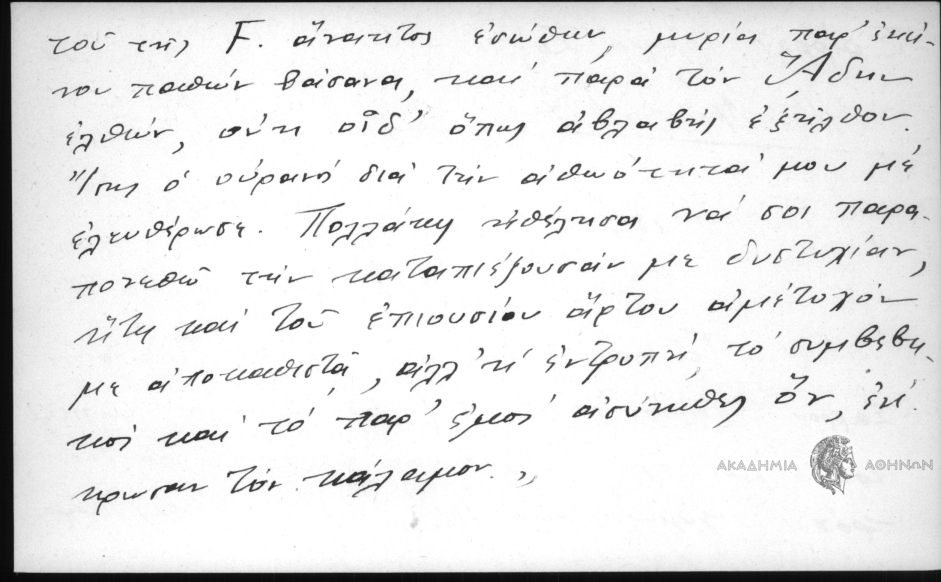 τοῦ τῆς F. ἄνακτος ἐσώθην, μυρία παρ' ἐκεί-
νου παθών βάσανα, καί παρά τόν Ἅδην
ἐλθών, οὐκ οἶδ' ὅπως ἀβλαβής ἐξῆλθον.
Ἴσως ὁ οὐρανός διά τήν ἀθωότητά μου μέ
ἐλευθέρωσε. Πολλάκις ἠθέλησα νά σοι παρα-
πονεθῶ τήν καταπιέζουσάν με δυστυχίαν,
ἥτις καί τοῦ ἐπιουσίου ἄρτου ἀμέτοχόν
με ἀποκαθιστᾷ, ἀλλ' ἡ ἐντροπή, τό συμβεβη-
κός καί τό παρ' ἐμοί ἀσύνηθες ὄν, ἐνέ-
κρωσαν τόν κάλαμον. "
ΑΚΑΔΗΜΙΑ ΑΘΗΝΩΝ